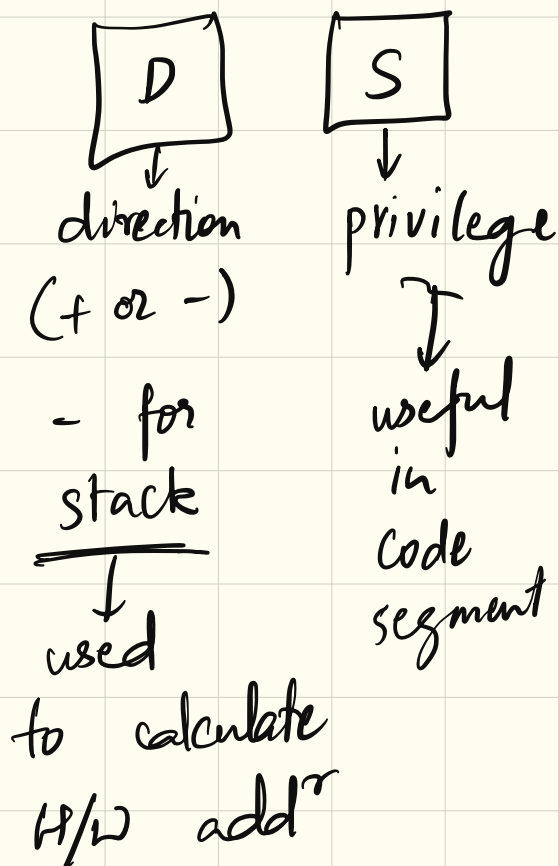 D
direction
(+ or -)
- for
stack
used
to calculate
H/W addr
S
privilege
useful
in
code
segment